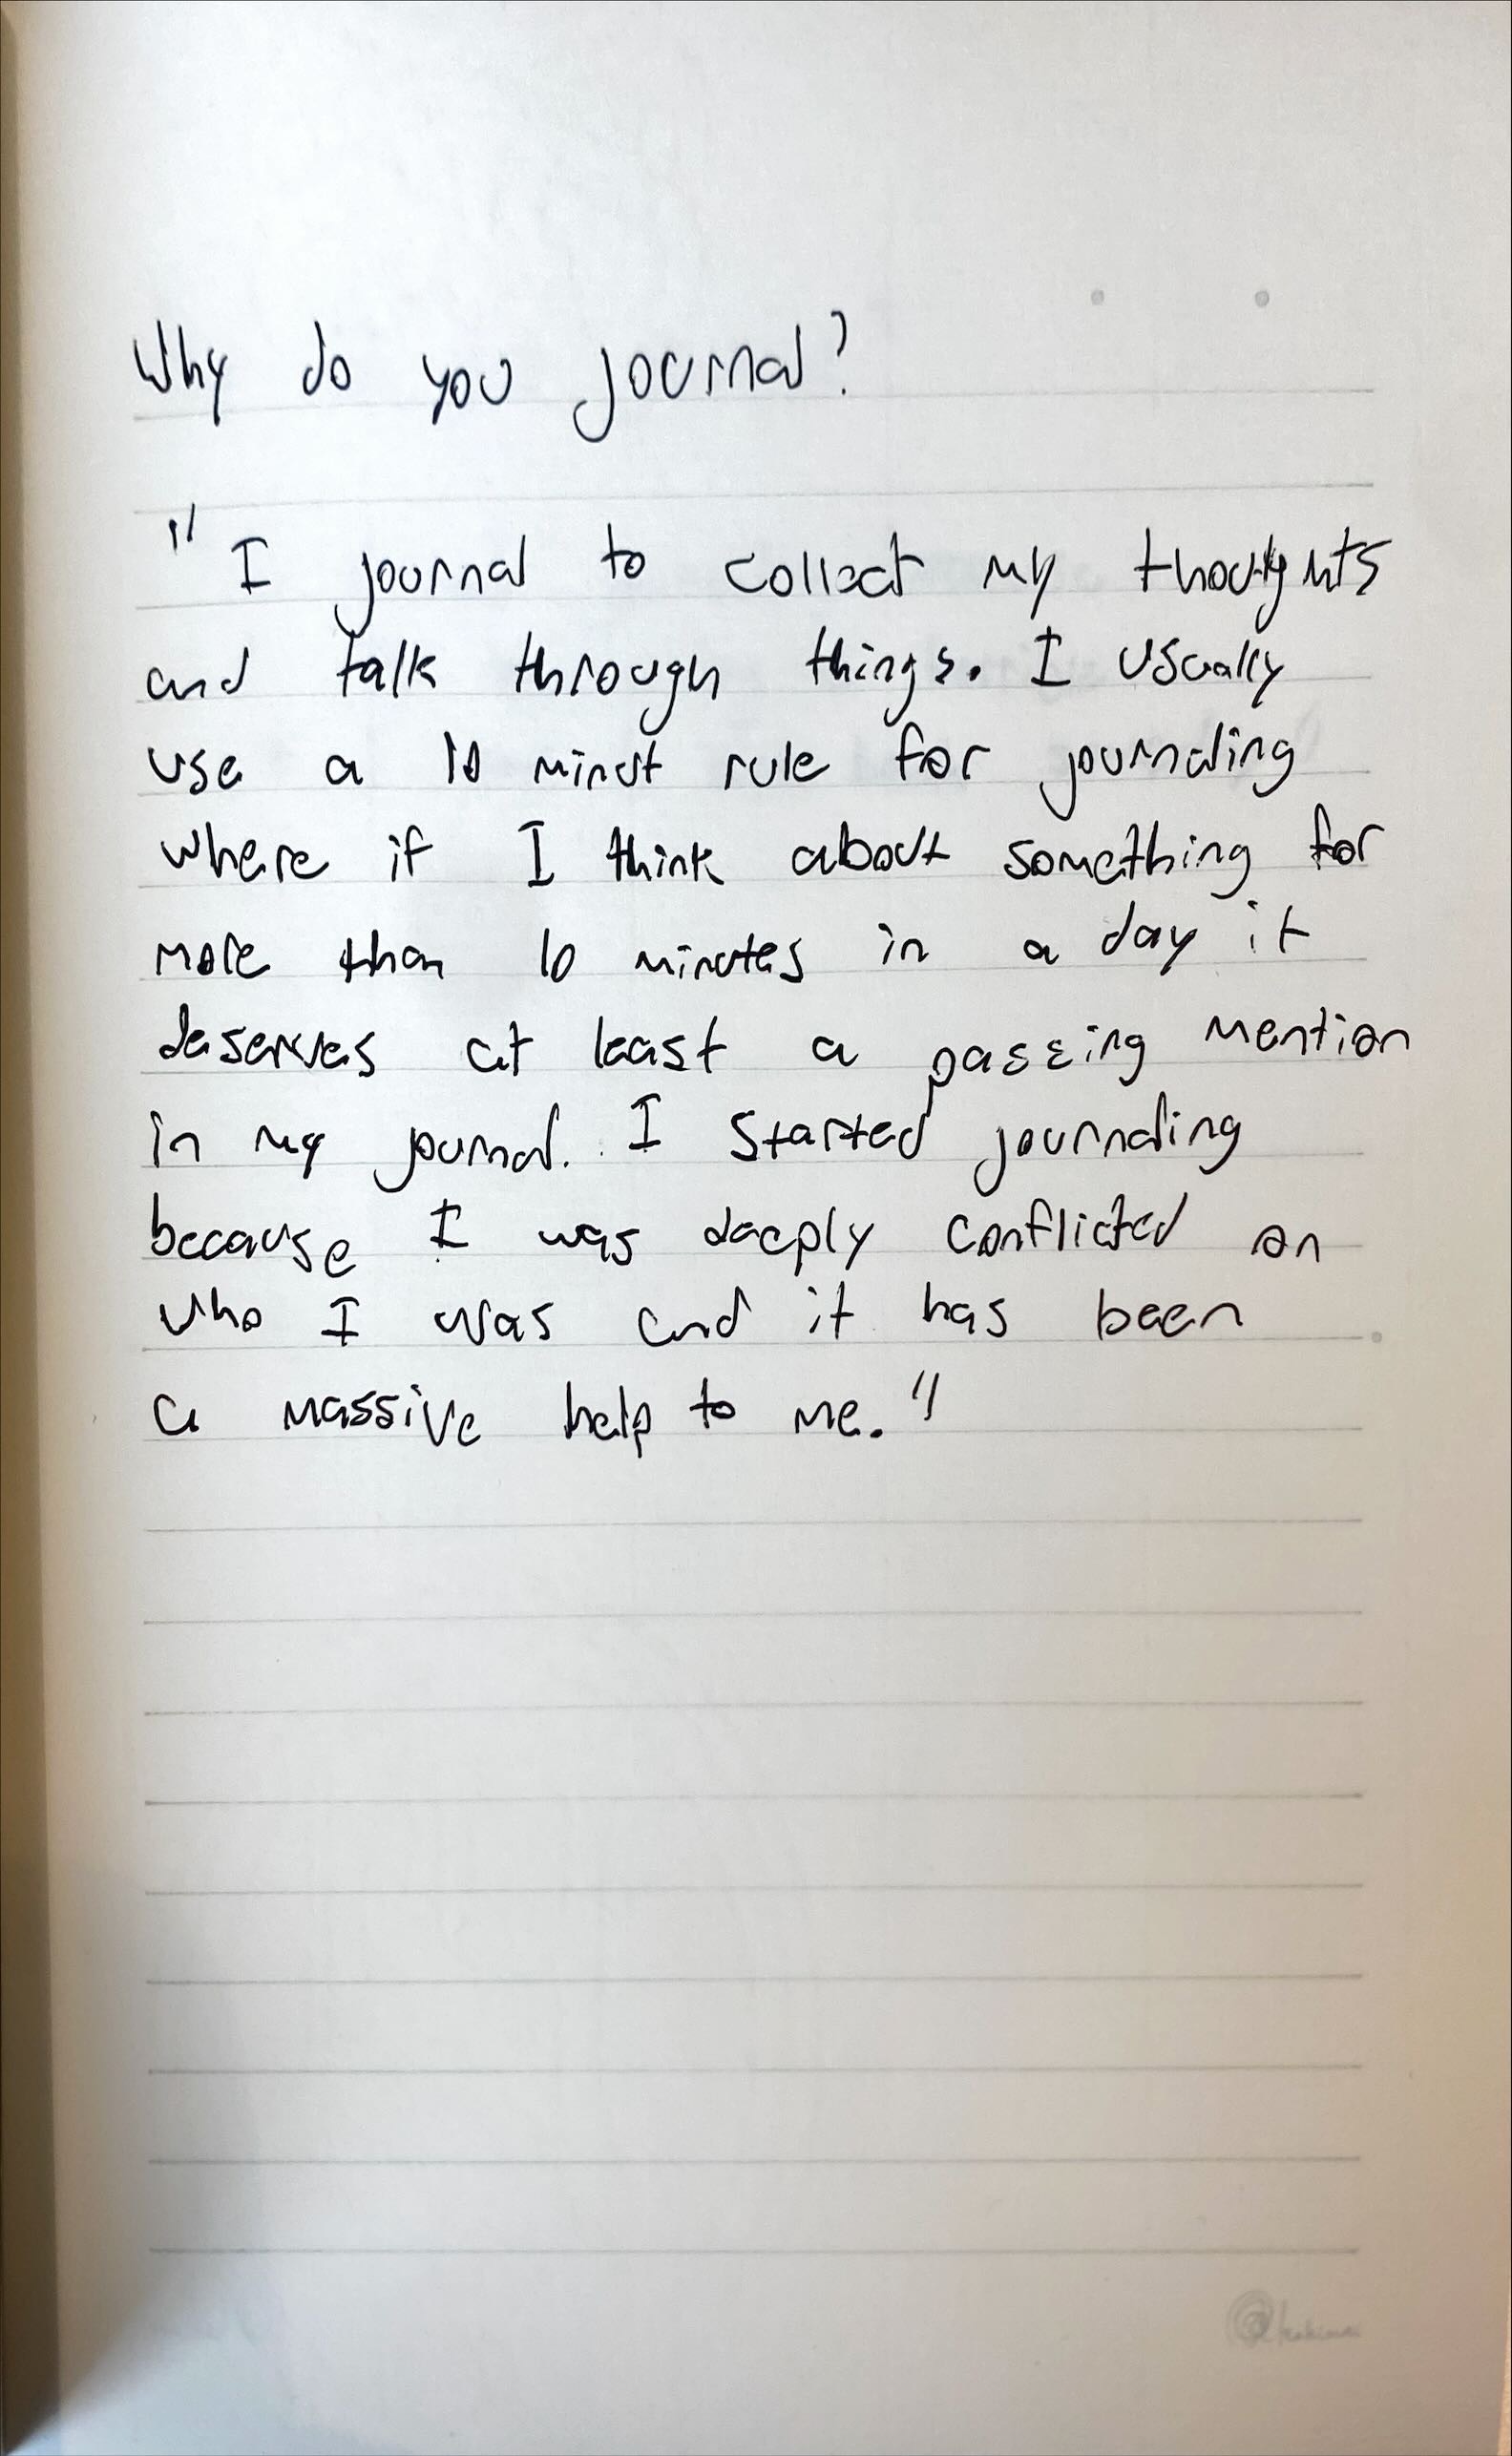 Why do you journal?
"I journal to collect my thoughts
and talk through things. I usually
use a 10 minut rule for journaling
where if I think about something for
more than 10 minutes in a day it
deserves at least a passing mention
in my journal. I started journaling
because I was deeply conflicted on
who I was and it has been
a massive help to me."